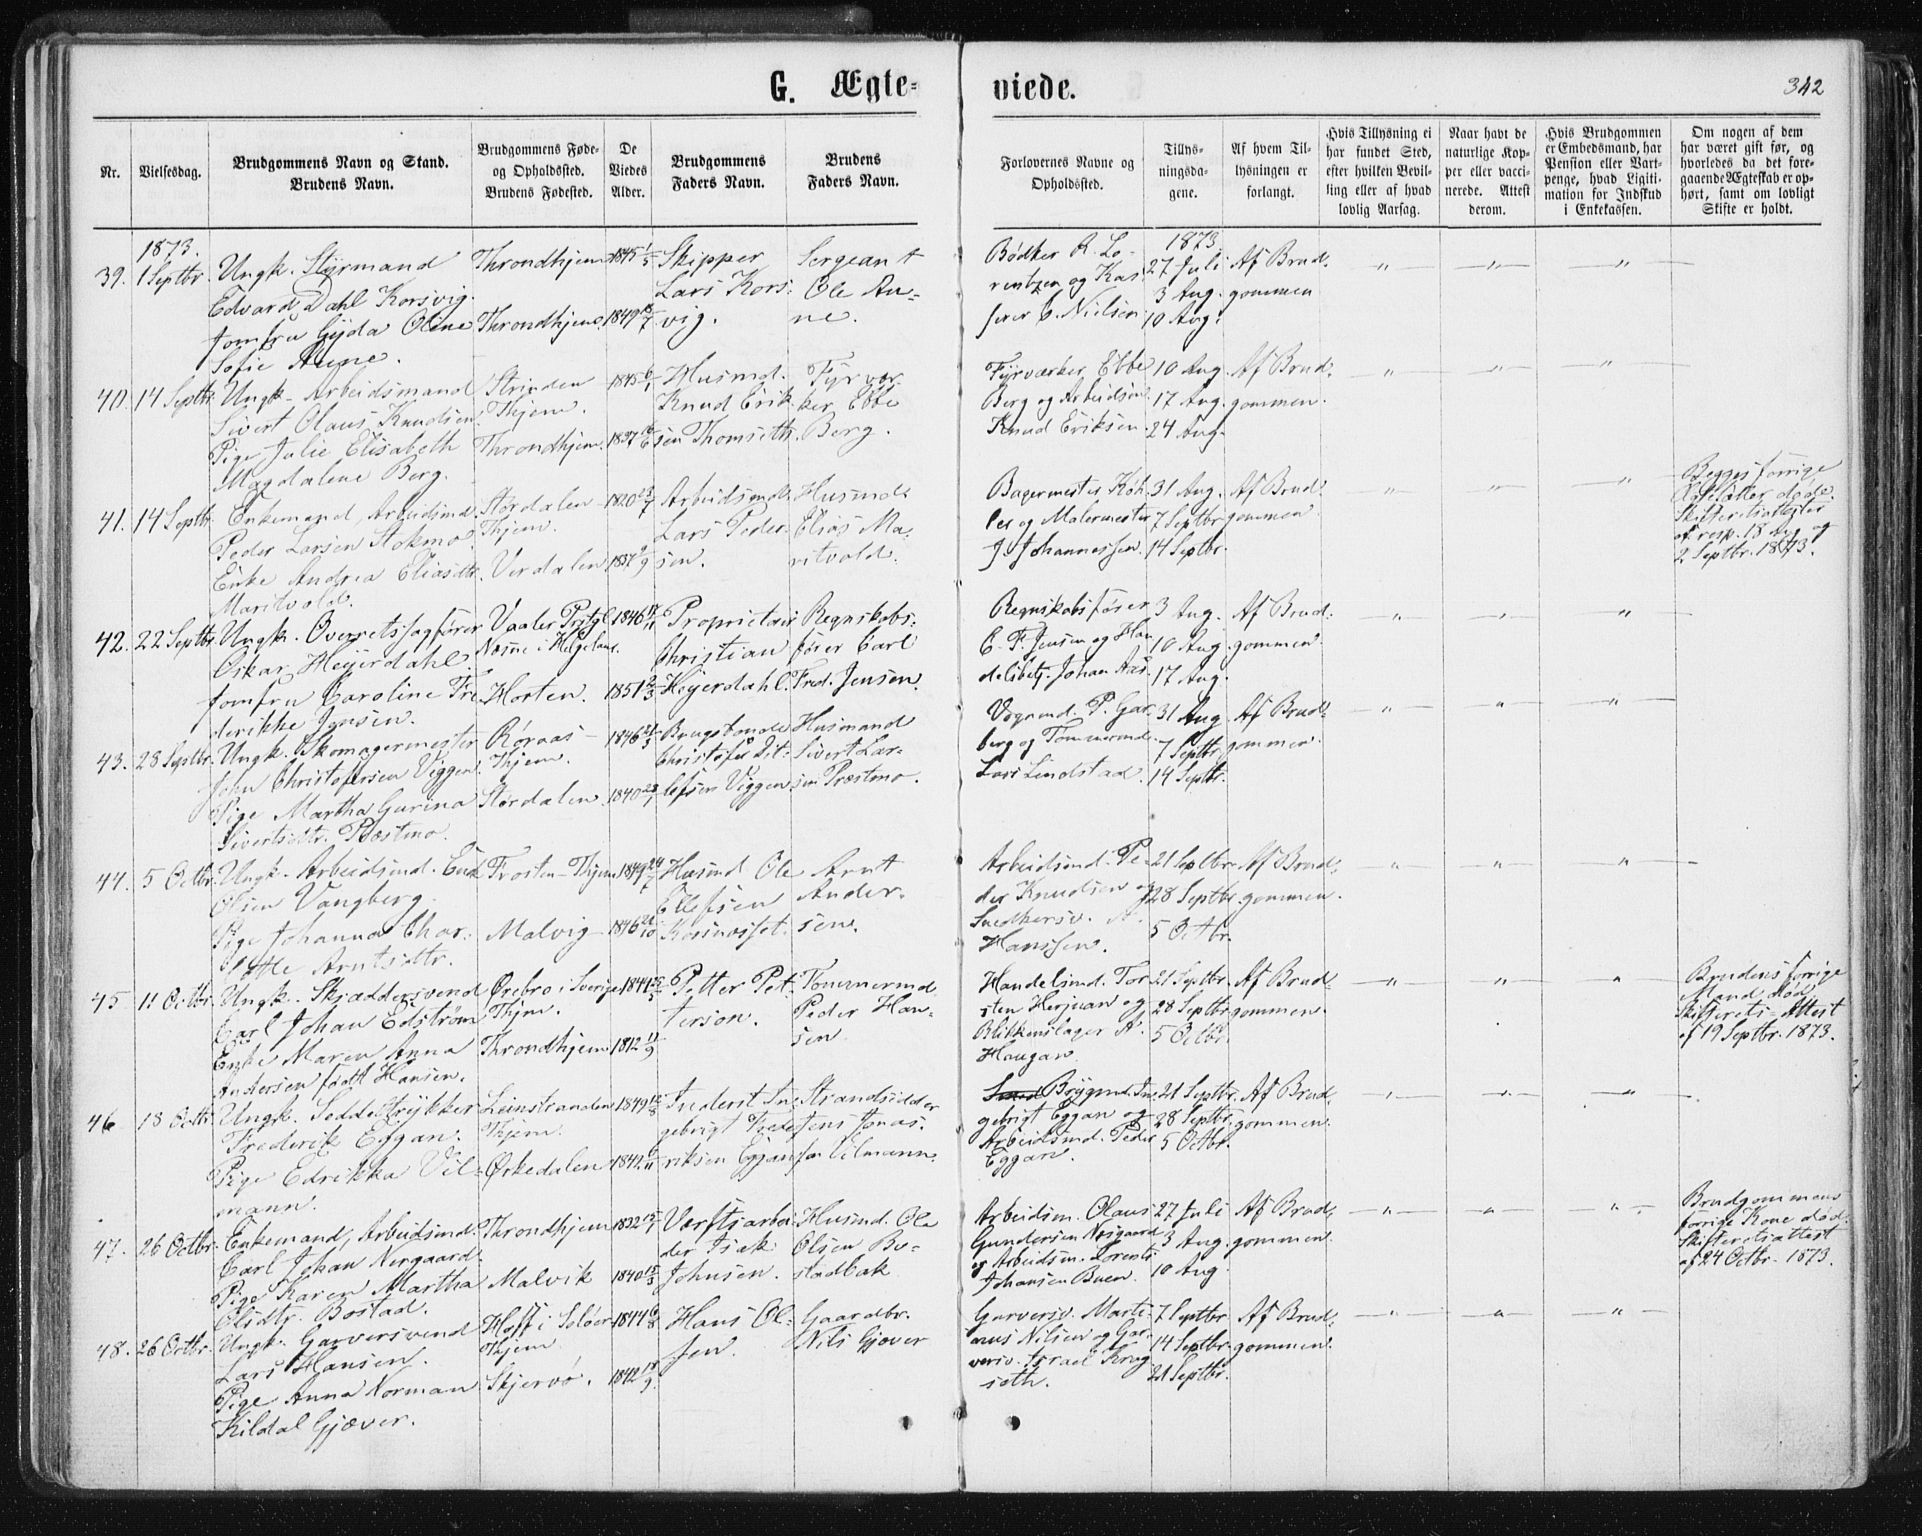 G. Ægte-
viede.
342
Nr.
Vielsesdag.
Brudgommens Navn og Stand.
Brudens Navn.
Brudgommens Føde-
og Opholdsted.
Brudens Fødested.
De
Viedes
Alder.
Brudgommens
Faders Navn.
Brudens
Faders Navn.
Forlovernes Navne og
Opholdsted.
Tillys-
ningsda-
gene.
Af hvem Til-
lysningen er
forlangt.
Hvis Tillysning ei
har fundet Sted,
efter hvilken Bevil-
ling eller af hvad
lovlig Aarsag.
Naar havt de
naturlige Kop-
per eller vacci-
nerede. Attest
derom.
Hvis Brudgommen
er Embedsmand, har
Pension eller Vart-
penge, hvad Ligiti-
mation for Indskud
i Enkekassen.
Om nogen af dem
har været gift før, og
hvorledes da det fore-
gaaende Ægteskab er op-
hørt, samt om lovligt
Skifte er holdt.
1873.
39. 1 Septbr.
Ungk. Styrmand
Edvard Dahl Korsvig.
Jomfru Gyda Oline
Sofie Aune.
Throndhjem
Throndhjem
1845 1/5
1849
Skipper
Lars Kors:
vig.
Sergeant
Ole Au-
ne.
Bødker R. Lo-
rentzen og Kas
serer C. Nielsen
1873
27 Juli
3 Aug.
10 Aug.
Af Brud-
gommen
40. 14 Septbr.
Ungk. Arbeidsmand
Sivert Olaus Knudsen
Pige Julie Elisabeth
Magdalene Berg.
Strinden
Thjem.
Throndhjem.
1845 6/1
1837
Husmd.
Knud Erik
sen Thomseth.
Fyrvær
ker Ebbe
Berg.
Fyrværker Ebbe
Berg og Arbeidsmd.
Knud Eriksen
10 Aug.
17 Aug.
24 Aug.
Af Brud-
gommen.
41. 14 Septbr.
Enkemand, Arbeidsmd.
Peder Larsen Stokmo
Enke Andrea Eliasdtr.
Maritvold.
Størdalen
Thjem.
Verdalen
1820 23/7
1837 9/9
Arbeidsmd.
Lars Peder-
sen.
Husmd.
Elias Ma-
ritvold.
Bagermester Køh
ler og Malermester
J. Johannessen.
31 Aug.
7 Septbr
14 Septbr.
Af Brud-
gommen
Begges forrige
Ægtefæller døde.
Skifteretsattester
af resp. 18 Aug og
2 Septbr. 1873.
42. 22 Septbr.
Ungk. Overretssagfører
Oskar Heyerdahl
Jomfru Caroline Fre
derikke Jensen.
Vaaler Prstgl.
Næsne i Helgeland.
Horten.
1846 17/11
1851 2/3
Proprietair
Christian
Heyerdahl.
Regnskabs-
fører Carl
Fred. Jensen.
Regnskabsfører
C. F. Jensen og Han
delsbetj. Johan Aas
3 Aug.
10 Aug.
17 Aug.
Af Brud-
gommen.
43. 28 Septbr.
Ungk. Skomagermester
John Christofersen Viggen.
Pige Martha Gurina
Sivertsdtr. Præstmo.
Røraas
Thjem.
Størdalen
1846
1840 23/1
Brugsbonde
Christofer Dit-
lefsen Viggen
Husmand
Sivert Lar-
sen Præstmo.
Vognmd. P. Gar
berg og Tømmermd.
Lars Lindstad
31 Aug
7 Septbr
14 Septbr.
Af Brud-
gommen.
44. 5 Octbr.
Ungk. Arbeidsmd. Erik
Olsen Vangberg.
Pige Johanna Char-
lotte Arntsdtr.
Frosten - Thjem
Malvig
1849 24/7
1846 21/10
Husmd Ole
Ellefsen
Korsnæsset.
Arnt
Ander-
sen.
Arbeidsmd. Pe-
der Knudsen og
Snedkersv. A.
Hanssen.
21 Septbr
28 Septbr
5 Octbr.
Af Brud-
gommen.
45. 11 Octbr.
Ungk. Skræddersvend
Carl Johan Edstrøm
Enke Maren Anna
Andersen født Hansen.
Ørebro i Sverige
Thjm.
Throndhjem
1844 25/5
1812 11/9
Petter Pet-
terson.
Tømmermd.
Peder Han-
sen
Handelsmd. Tor
sten Herjuan og
Blikkenslager A.
Haugan
21 Septbr.
28 Septbr
5 Octbr.
Af Brud-
gommen.
Brudens forrige
Mand død.
Skifterets-Attest
af 19 Septbr. 1873.
46 18 Octbr.
Ungk. Seddeltrykker
Frederik Eggan.
Pige Edrikka Vil-
mann.
Leinstranden
Thjem.
Ørkedalen
1849 15/8
1849 6/11
Inderst In-
gebrigt Frede
riksen Eggan
Strandsidder
Jens Jonas-
sen Vilmann.
Brygmd. In-
gebrigt Eggan og
Arbeidsmd. Peder
Eggan.
21 Septbr.
28 Septbr.
5 Octbr.
Af Brud-
gommen.
47. 26 Octbr.
Enkemand, Arbeidsmd.
Carl Johan Norgaard.
Pige Karen Martha
Olsdtr. Bostad.
Throndhjem
Malvik
1832 15/1
1840 15/3
Værftsarbei
der Isak
Johnsen.
Husmd. Ole
Olsen Bo-
stadbak
Arbeidsm. Olaus
Gundersen Norgaard
og Arbeidsm. Lorents
Johansen Buen.
27 Juli
3 Aug.
10 Aug.
Af Brud-
gommen.
Brudgommens
forrige Kone død
Skifteretsattest
af 24 Octbr. 1873.
48. 26 Octbr.
Ungk. Garversvend
Lars Hansen.
Pige Anna Norman
Kildal Gjæver.
Hoff i Soløer
Thjem
Skjervø.
1844 6/8
1842 18/9
Hans Ol-
sen.
Gaardbr.
Nils Gjæver
Garversv. Marti-
nus Nilsen og Gar-
versv. Israel Krog
seth.
7 Septbr
14 Septbr.
21 Septbr.
Af Brud-
gommen.